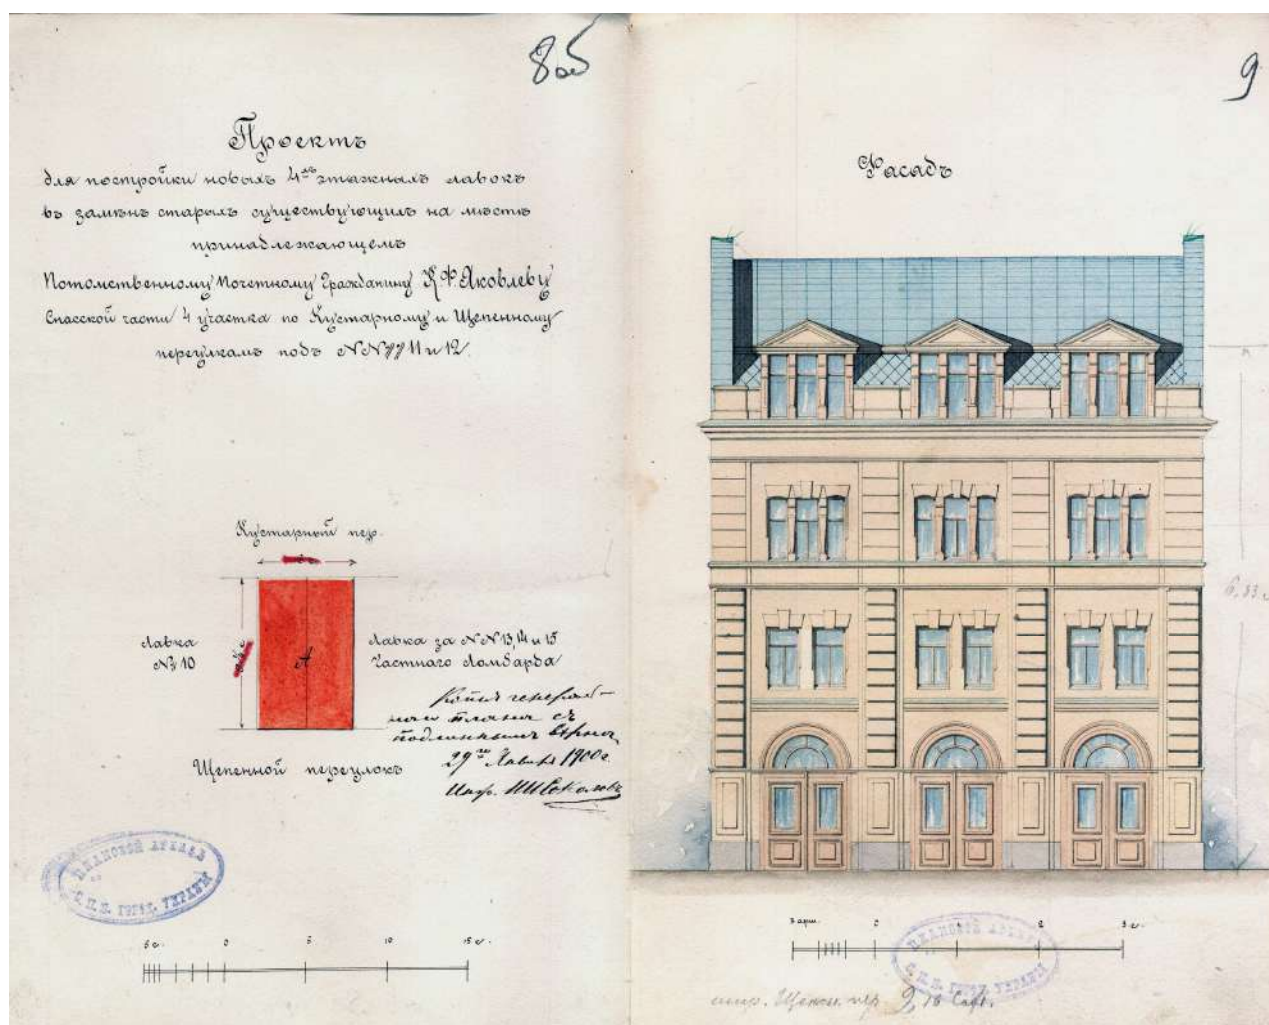 8 об
Проектъ
для постройки новыхъ 4хъ этажныхъ лавокъ
въ замѣнъ старыхъ существующихъ на мѣстѣ
принадлежащемъ
Потомственному Почетному Гражданину К. Ф. Яковлеву
Спасской части 4 участка по Кустарному и Щепенному
переулкамъ подъ №№ 11 и 12.
Кустарный пер.
Лавка
№ 10
А
Лавка за №№ 13, 14 и 15
Частнаго Ломбарда
Копия генераль-
наго плана съ
подлиннымъ вѣрна
29го Января 1900 г.
Щепенной переулокъ
ПЛАНОВОЙ АРХИВЪ
С.П.Б. ГОРОД. УПРАВЫ
5 с. 0 5 10 15 с.
9
Фасадъ
6,33
3 арш. 0 1 2 3 с.
ПЛАНОВОЙ АРХИВЪ
С.П.Б. ГОРОД. УПРАВЫ
шир. Щепен. пер. 2,16 Саж.